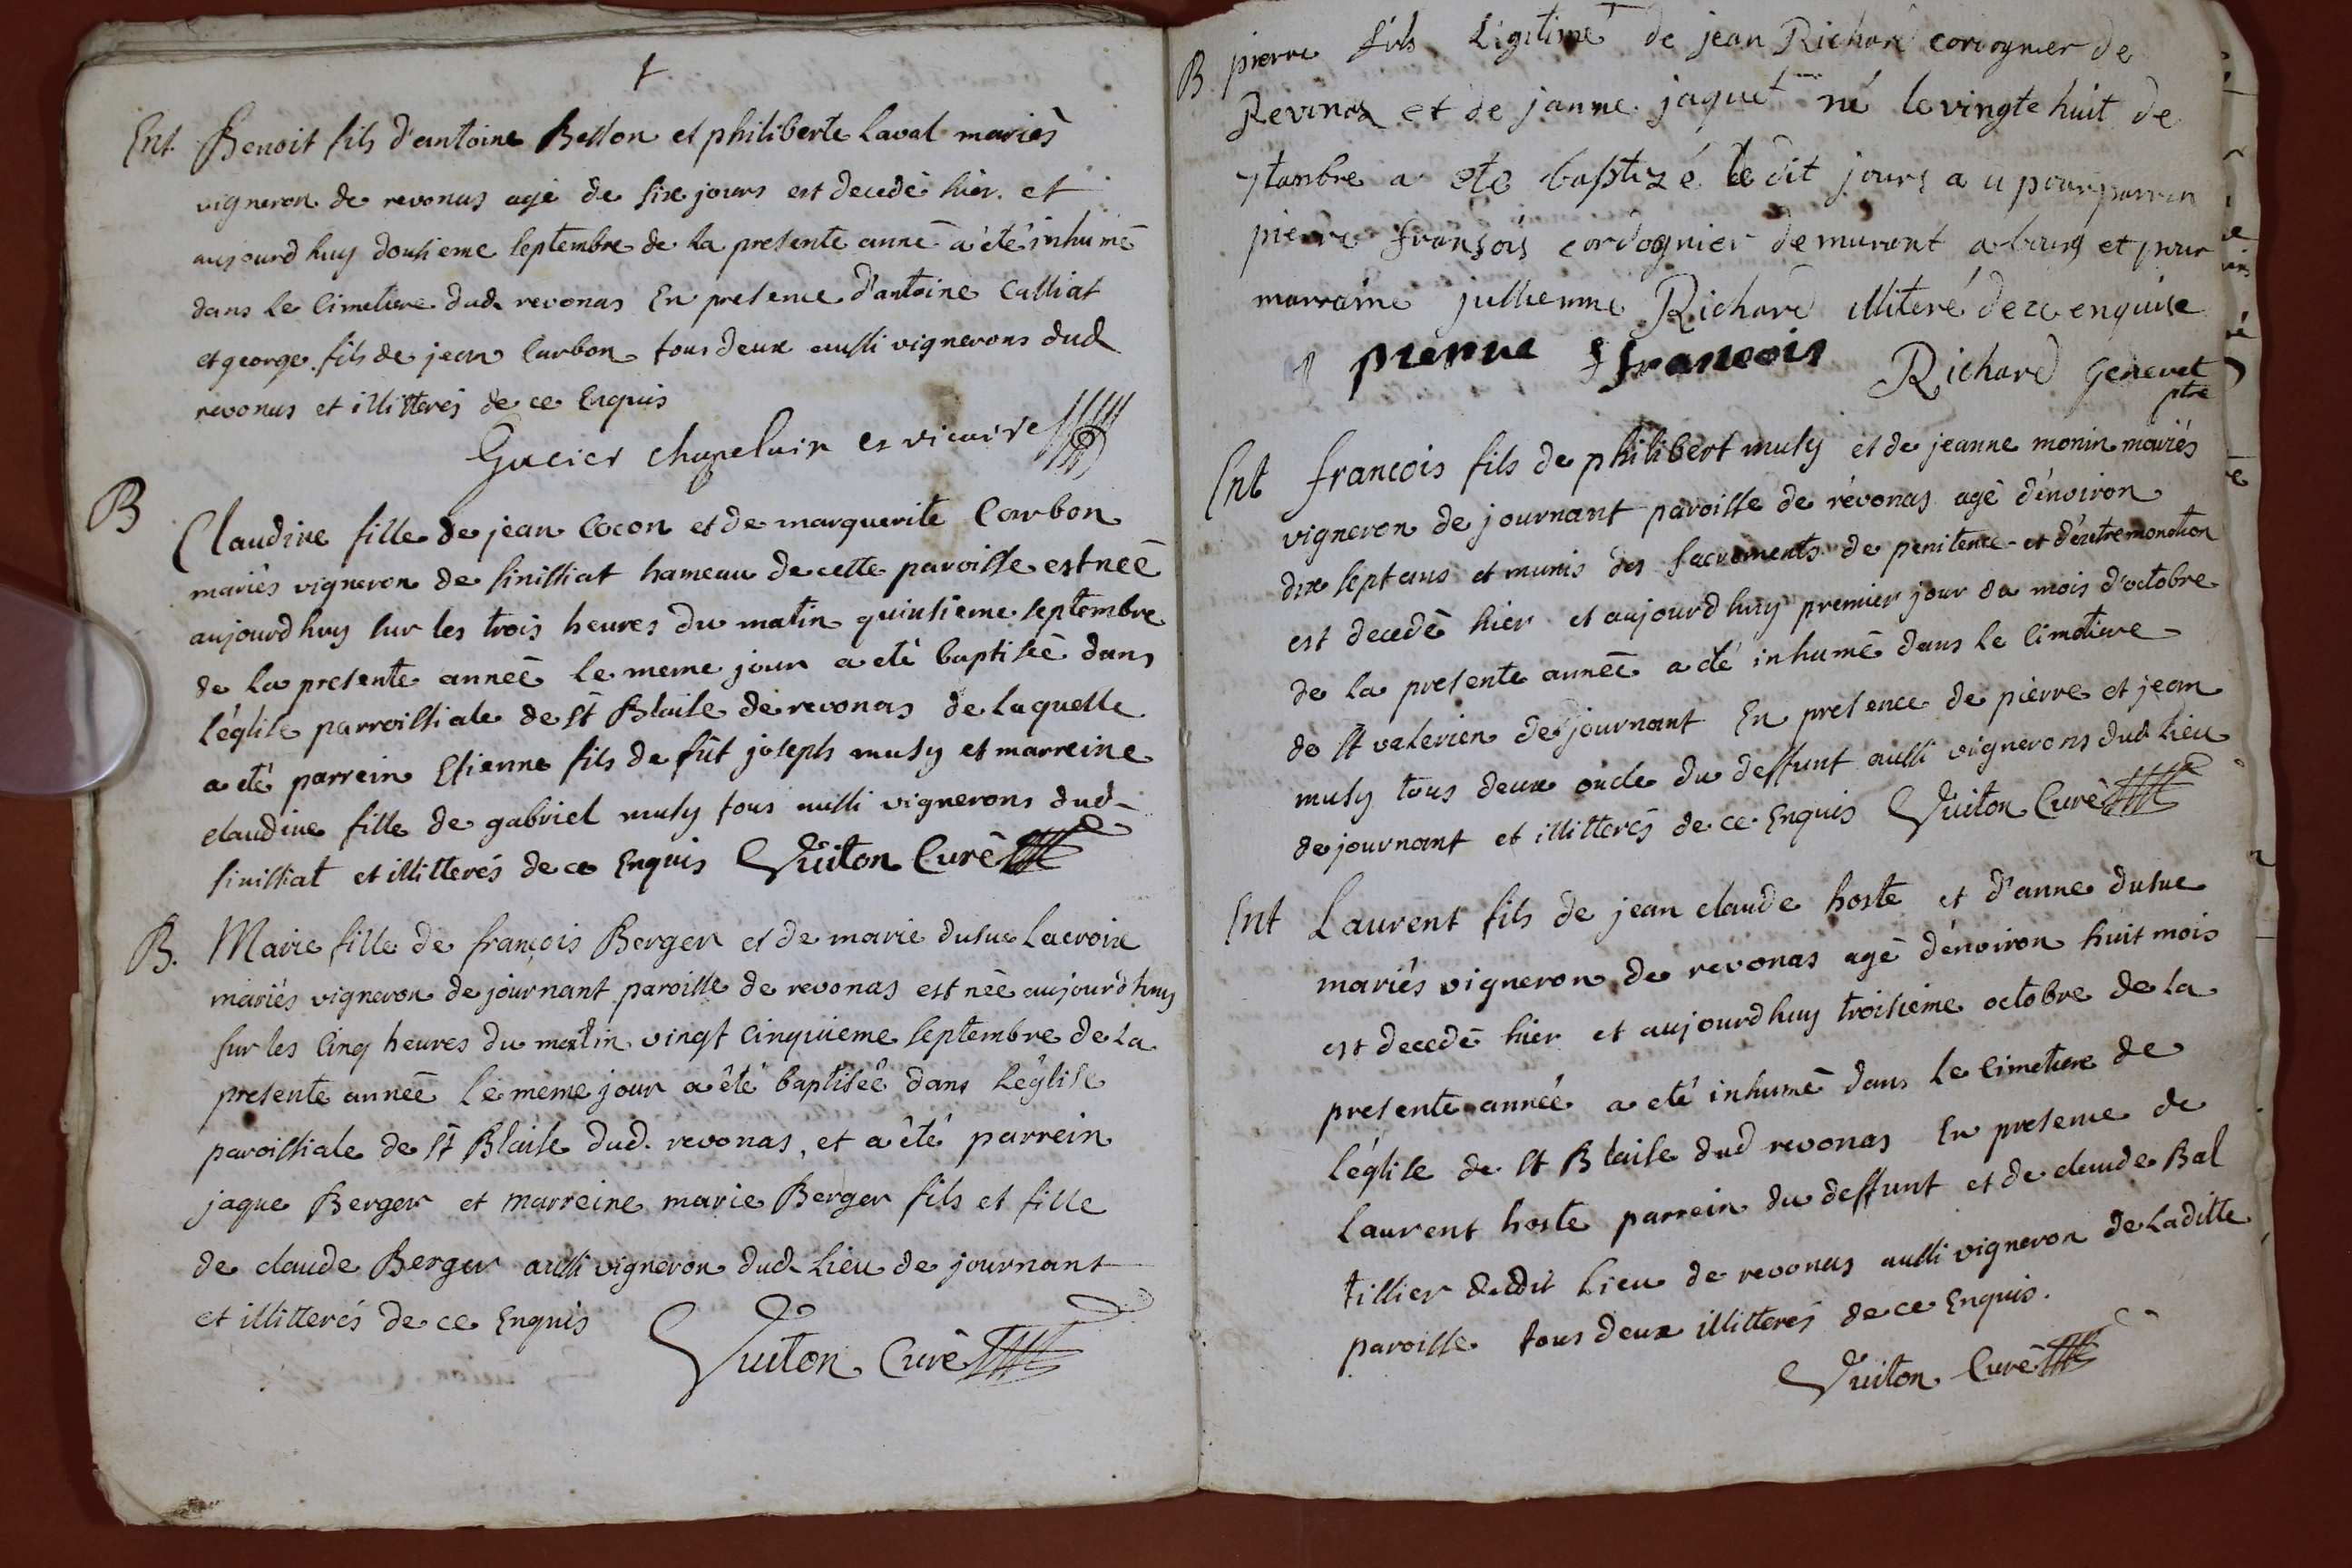 Ent. Benoit fils d'antoine Besson et philiberte Laval mariés
vigneron de revonas agé de six jours est decedé hier. et
aujourd huy dousieme septembre de la presente anné a été inhumé
dans le Cimetiere dud revonas En presence d'antoine Calliat
et george fils de jean Carbon tous deux aussi vignerons dud
revonas et illitterés de ce Enquis
chapelain et vicaire
B Claudine fille de jean Cocon et de marguerite Carbon
mariés vigneron de sinissiat hameau de cette paroisse est neé
aujourd huy sur les trois heures du matin quinsieme septembre
de la presente anneé le meme jour a eté baptiseé dans
l'église parroissiale de St Blaise de revonas de laquelle
a eté parrein Etienne fils de fût joseph musy et marreine
claudine fille de gabriel musy tous aussi vignerons dud
sinissiat et illitterés de ce Enquis Vuiton Curé
B. Marie fille de françois Berger et de marie dusue Lacroix
mariés vigneron de journant paroisse de revonas est née aujourd'huy
sur les Cinq heures du matin vingt Cinquieme septembre de la
presente anneé le meme jour a été baptiseé dans l'église
paroissiale de St Blaise dud. revonas, et a été parrein
jaque Berger et marreine marie Berger fils et fille
de claude Berger aussi vigneron dud Lieu de journant
et illitterés de ce Enquis Vuiton Curé
B pierre fils Ligitime de jean Richard cordognier de
Revonas et de janne jaquet né le vingte huit de
7tambre a eté baptizé le dit jours a u pour parrin
pierre fransois cordognier demurant a bourg et pour
marraine jullienne Richard illiteré de ce enquise
pierre francois Richard Genevet
ptre
Ent francois fils de philibert musy et de jeanne monin mariés
vigneron de journant paroisse de revonas agé d'environ
dix sept ans et munis des sacrements de penitence et d'extremonction
est decedé hier et aujourd huy premier jour du mois d'octobre
de la presente anneé a été inhumé dans le Cimetiere
de St valerien de journant En presence de pierre et jean
musy tous deux oncle du deffunt aussi vignerons dud Lieu
de journant et illitterés de ce Enquis Vuiton Curé
Ent Laurent fils de jean claude hoste et d'anne dusue
mariés vigneron de revonas agé d'environ huit mois
est decedé hier et aujourd huy troisieme octobre de la
presente anneé a eté inhumé dans le Cimetiere de
l'église de St Blaise dud revonas En presence de
Laurent hoste parrein du deffunt et de claude Bal
tissier dudit Lieu de revonas aussi vigneron de Laditte
paroisse tous deux illitterés de ce Enquis.
Vuiton Curé